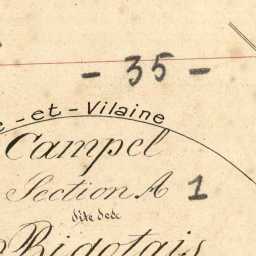 - 35 -
e-et-Vilaine
Campel
Section A 1
dite de
Bigotais